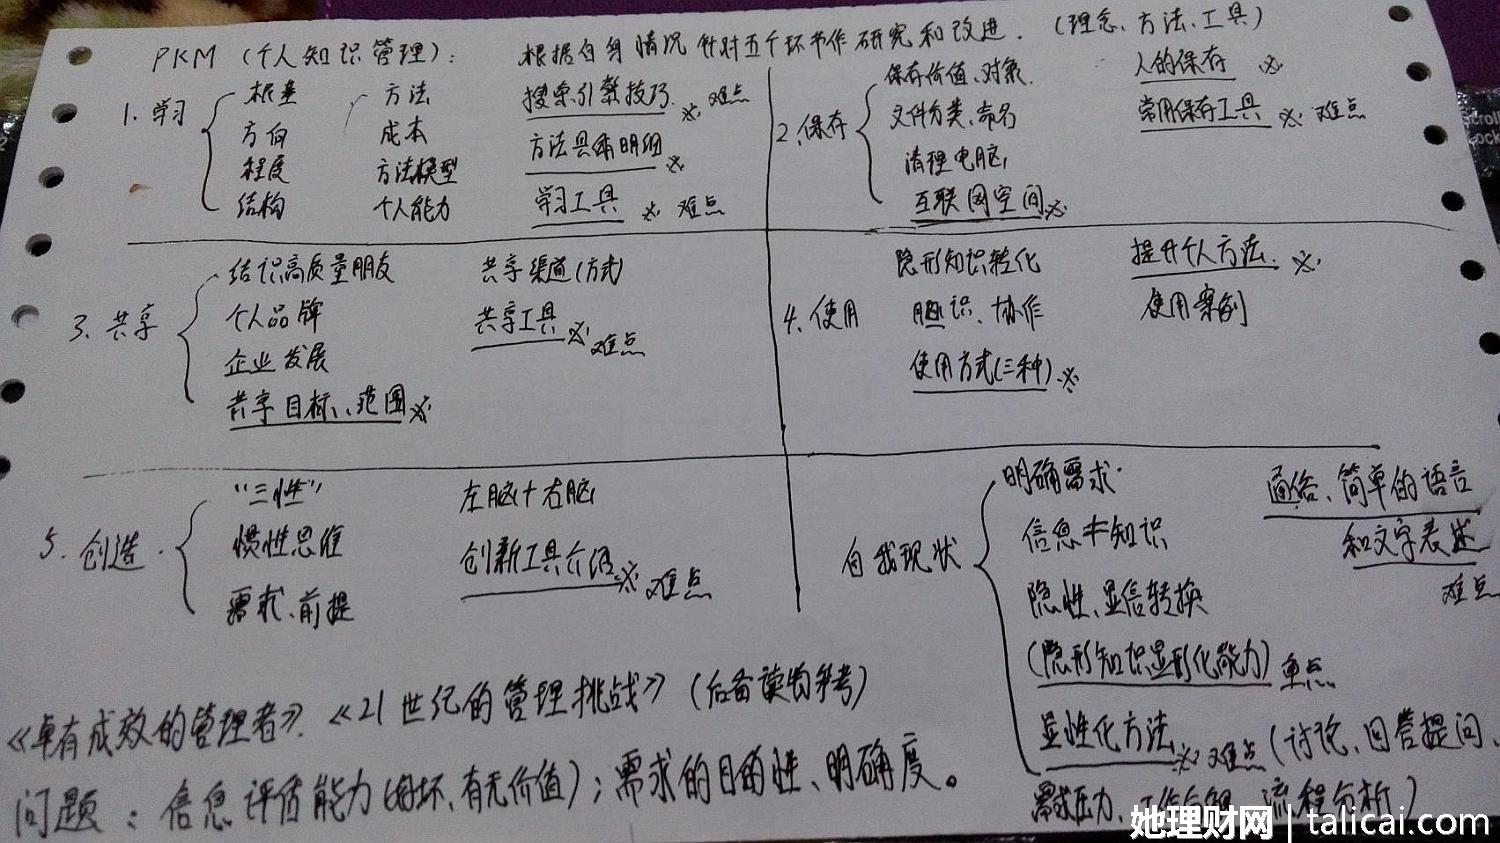 PKM (个人知识管理): 根据自身情况针对五个环节作研究和改进. (理念、方法、工具)
1. 学习
框量 方法 搜索引擎技巧 ※ 难点
方向 成本 方法具体明细 ※
程度 方法模型 学习工具 ※ 难点
结构 个人能力
2. 保存
保存价值、对象. 人的保存 ※
文件分类、命名 常用保存工具 ※ 难点
清理电脑
互联网空间 ※
3. 共享
结识高质量朋友 共享渠道(方式)
个人品牌 共享工具 ※ 难点
企业发展
共享目标、范围 ※
4. 使用
隐形知识转化 提升个人方法. ※
胆识、协作 使用案例
使用方式(三种) ※
5. 创造.
"三性" 左脑+右脑
惯性思维 创新工具介绍 ※ 难点
需求、前提
自我现状
明确需求. 通俗、简单的语言
信息≠知识 和文字表述
隐性、显信转换 难点
(隐形知识显形化能力) 重点
显性化方法 ※ 难点 (讨论、回答提问、
需求压力、流程分析)
《卓有成效的管理者》.《21世纪的管理挑战》(后备读物参考)
问题: 信息评估能力(好坏、有无价值); 需求的目的性、明确度。
她理财网 | talicai.com
Scroll
Lock